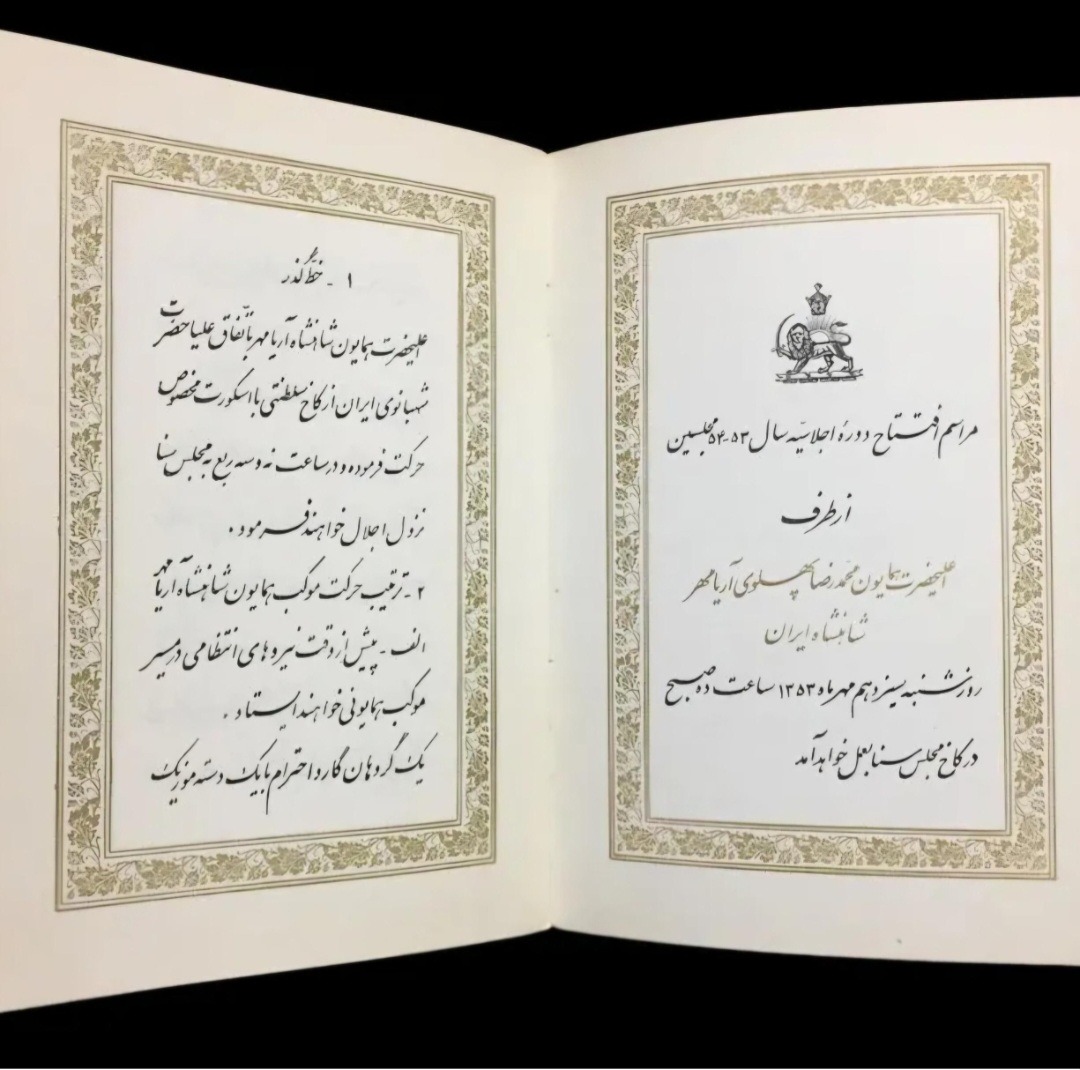 مراسم افتتاح دورهٔ اجلاسیّه سال ۵۳-۵۴ مجلسین
از طرف
اعلیحضرت همایون محمّد رضا پهلوی آریامهر
شاهنشاه ایران
روز شنبه سیزدهم مهرماه ۱۳۵۳ ساعت ده صبح
در کاخ مجلس سنا بعمل خواهد آمد
۱ - خطّ گذر
اعلیحضرت همایون شاهنشاه آریامهر باتّفاق علیاحضرت
شهبانوی ایران از کاخ سلطنتی با اسکورت مخصوص
حرکت فرموده و در ساعت نه و سه ربع به مجلس سنا
نزول اجلال خواهند فرمود.
۲ - ترتیب حرکت موکب همایون شاهنشاه آریامهر
الف - پیش از وقت نیروهای انتظامی در مسیر
موکب همایونی خواهند ایستاد.
یک گروهان گارد احترام با یک دسته موزیک